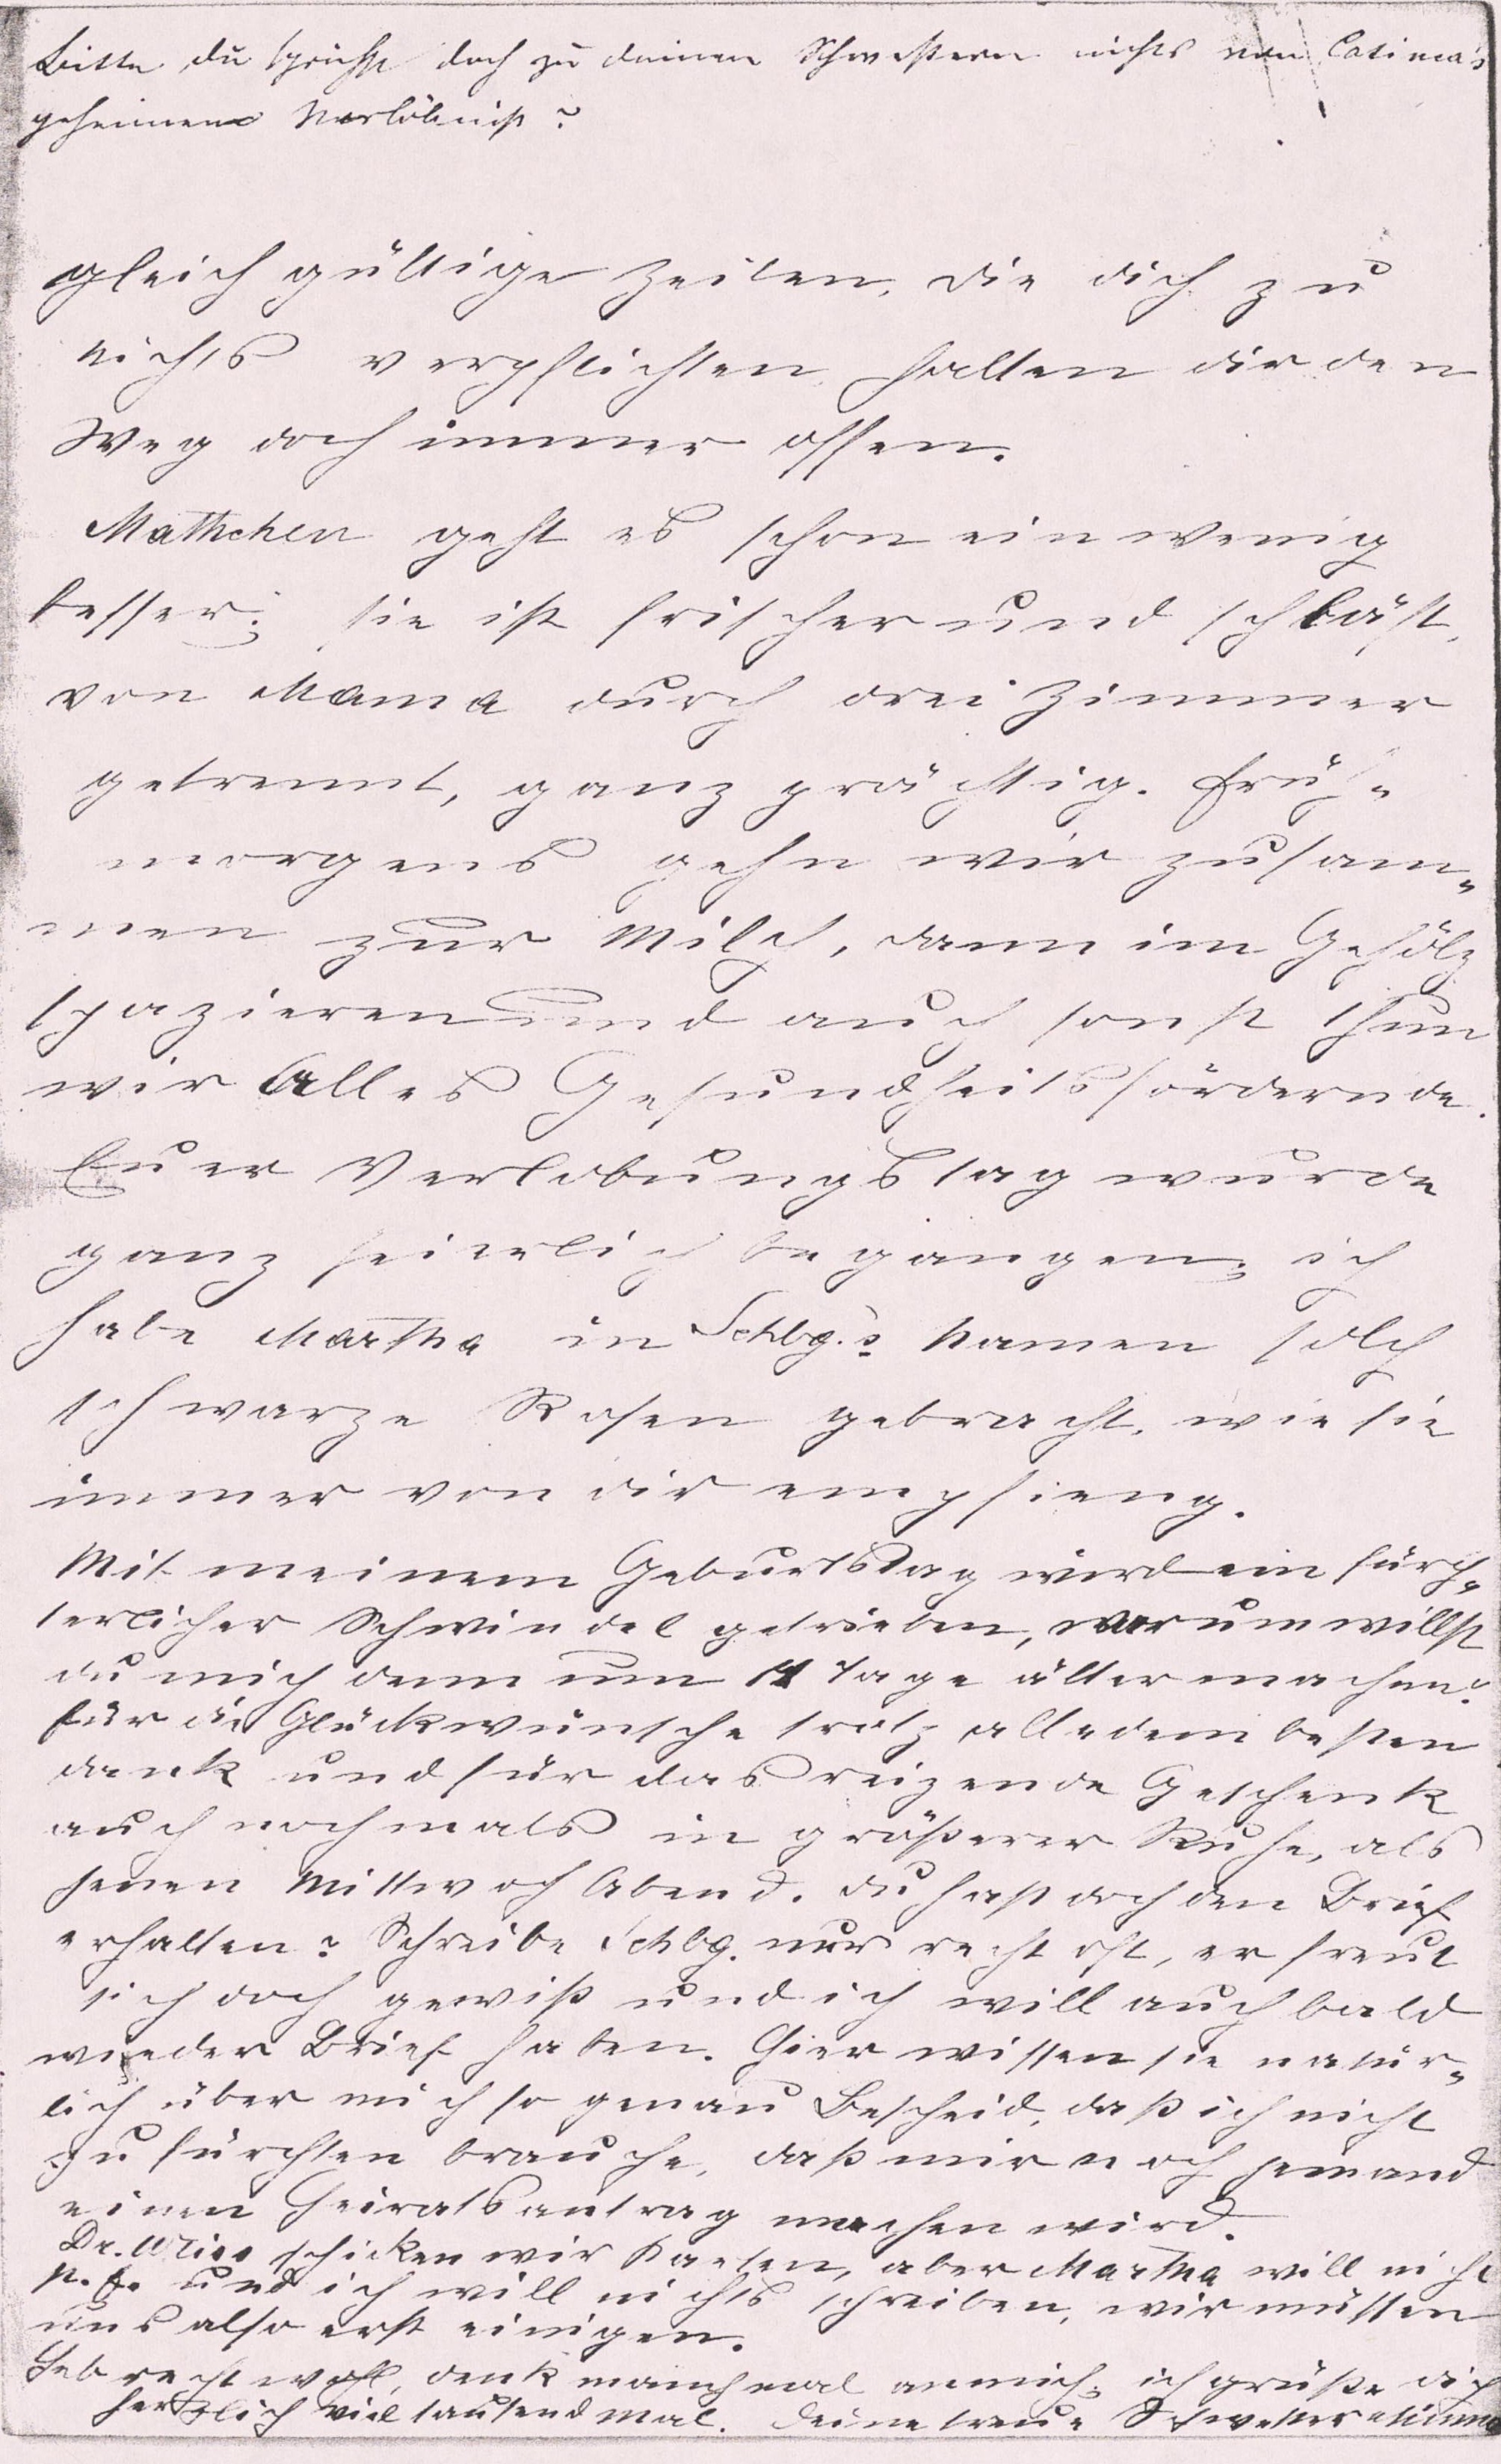 Bitte du sprichst doch zu deinen Schwestern nichts von Catinca's
geheimem Verlöbniß?
gleich gültige Zeilen, die dich zu
nichts verpflichten, halten dir den
Weg doch immer offen.
Mattchen geht es schon ein wenig
besser; sie ist frischer und schläft,
von Mama durch drei Zimmer
getrennt, ganz prächtig. Früh-
morgens gehn wir zusam-
men zur Milch, dann im Gehölz
spazieren und auch sonst thun
wir Alles Gesundheitsfördernde.
Euer Verlobungstag wurde
ganz feierlich begangen; ich
habe Martha in Schbg.'s Namen solch
schwarze Rosen gebracht, wie sie
immer von dir empfieng.
Mit meinem Geburtstag wird ein fürch-
terlicher Schwindel getrieben, warum willst
du mich denn um 14 Tage älter machen?
Für die Glückwünsche trotz alledem besten
Dank und für das reizende Geschenk
auch nochmals in größerer Ruhe, als
jenen Mittwoch Abend. Du hast doch den Brief
erhalten? Schreibe Schbg. nur recht oft, er freut
sich doch gewiß und ich will auch bald
wieder Brief haben. Hier wissen sie natür-
lich über mich so genau Bescheid, daß ich nicht
zu fürchten brauche, daß mir noch jemand
einen Heiratsantrag machen wird.
Dr. schicken wir Karten, aber Martha will nicht
p. f. und ich will nichts schreiben, wir müssen
uns also erst einigen.
Leb recht wohl, denk manchmal an mich; ich grüße dich
herzlich viel tausendmal. Deine treue Schwester Minna